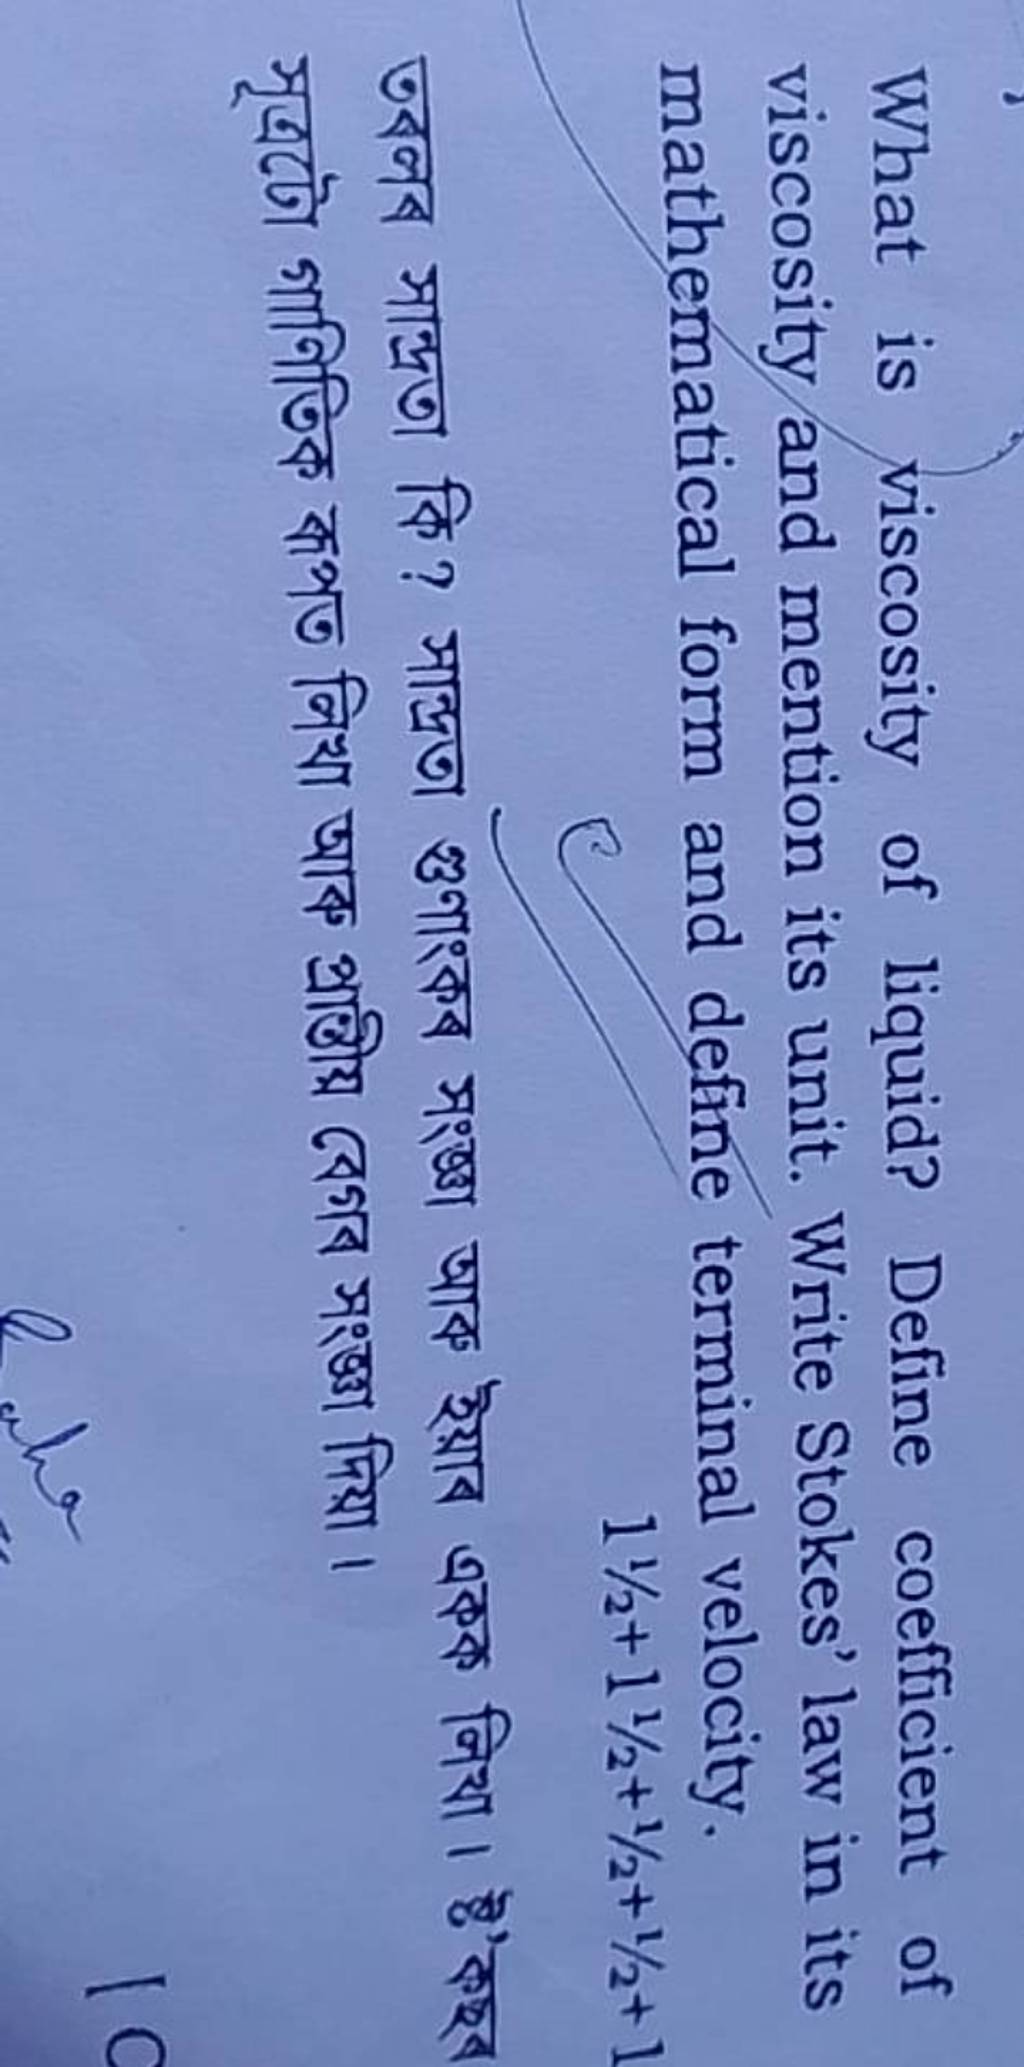 What is viscosity of liquid? Define coefficient of
viscosity and mention its unit. Write Stokes’ law in its
mathematical form and define terminal velocity.
1½+1½+½+½+1
তৰলৰ সান্দ্ৰতা কি? সান্দ্ৰতা গুণাংকৰ সংজ্ঞা আৰু ইয়াৰ একক লিখা। ষ্ট’কছৰ
সূত্ৰটো গাণিতিক ৰূপত লিখা আৰু প্ৰান্তীয় বেগৰ সংজ্ঞা দিয়া।